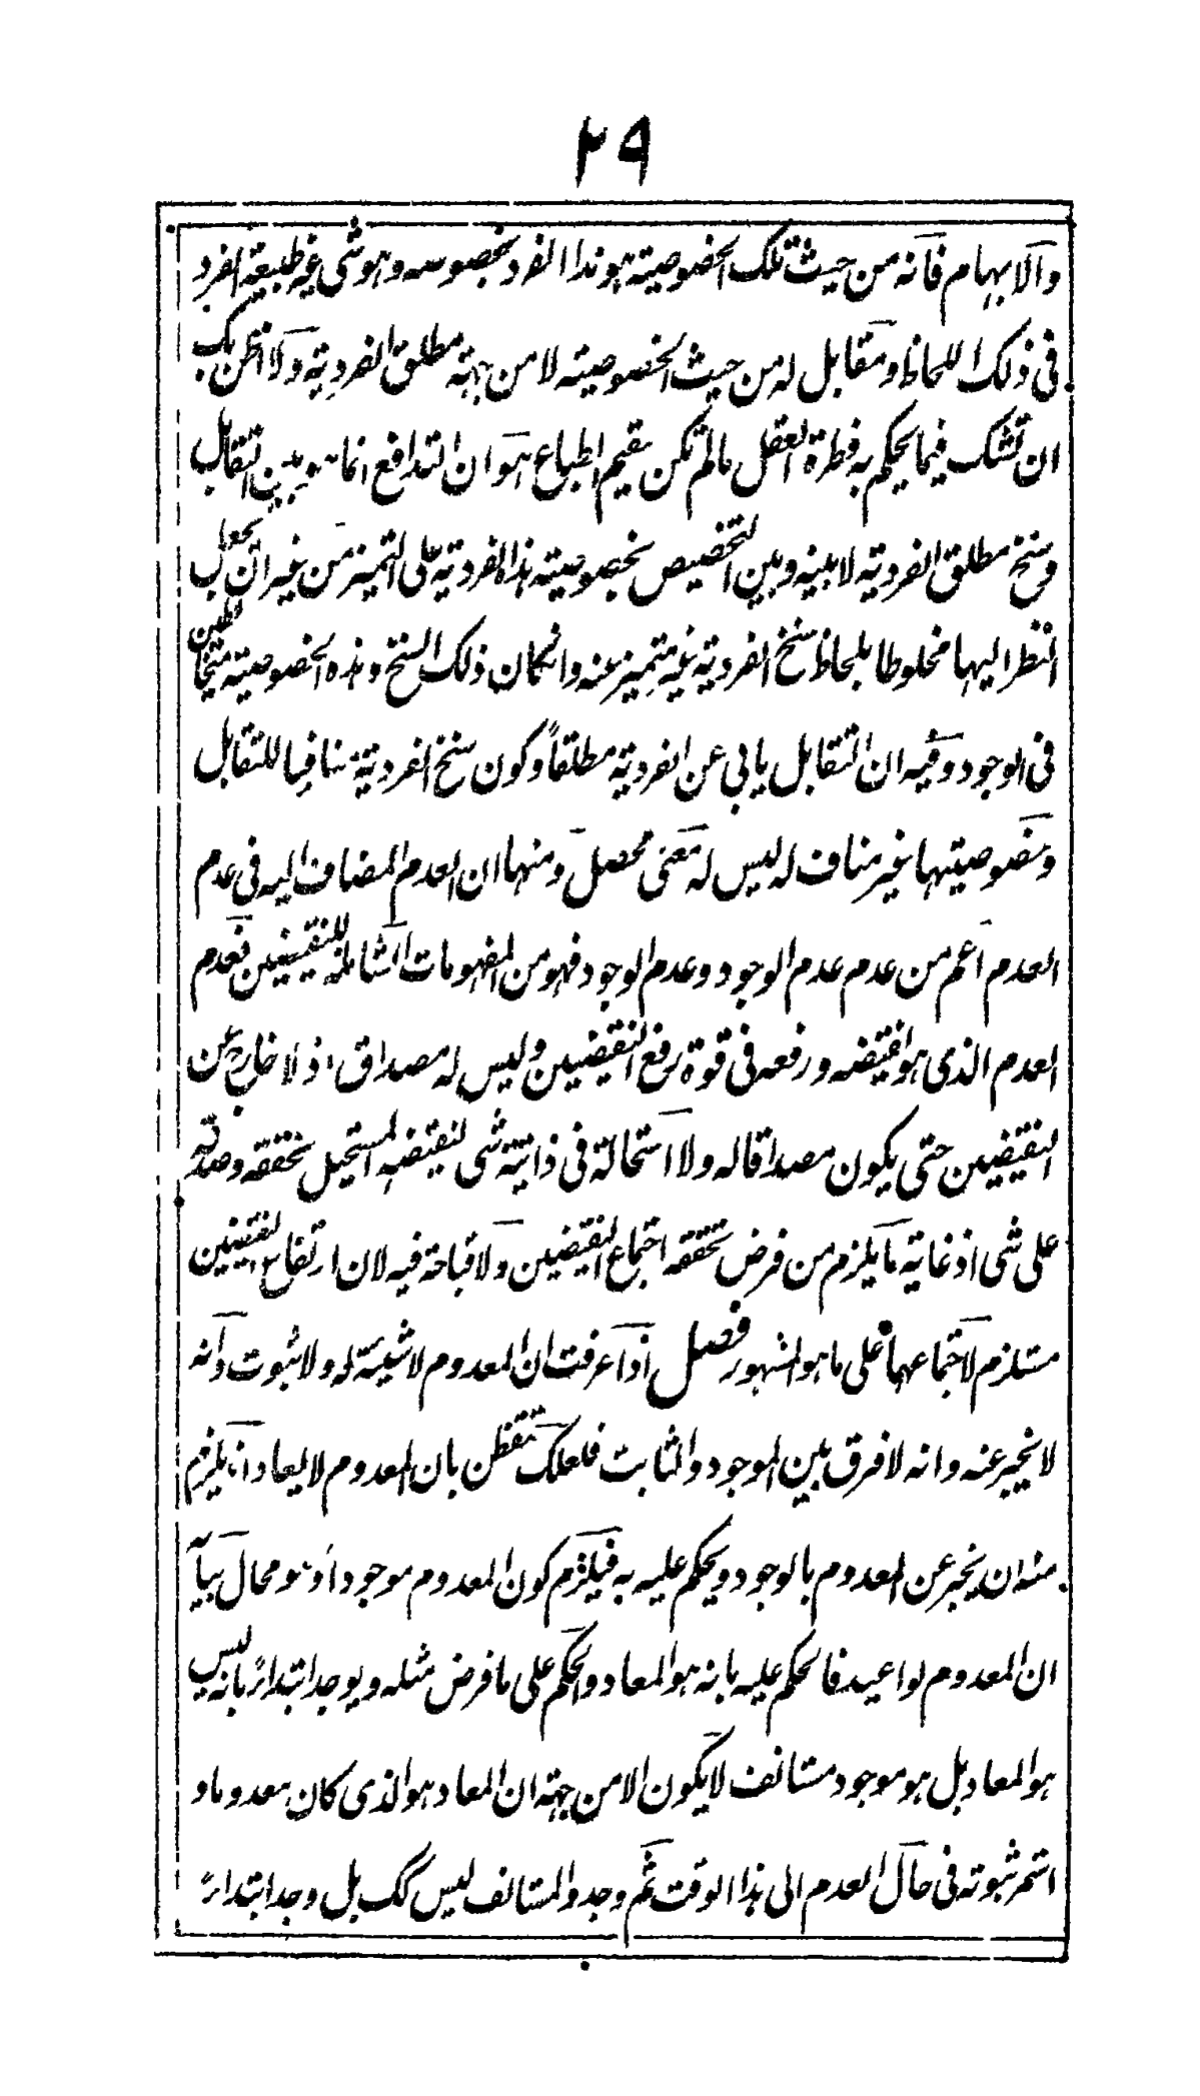 ٢٩
والابهام فانه من حيث تلك الخصوصية هو هذا الفرد بخصوصه وهو شئ غير طبيعة الفرد
فى ذلك اللحاظ ومقابل له من حيث الخصوصية لا من جهة مطلق الفردية ولا اظن بك
ان تشك فيما يحكم به فطرة العقل ما لم تكن سقيم الطباع هو ان التدافع انما هو بين التقابل
وسنخ مطلق الفردية لا بينه وبين التخصيص بخصوصية هذه الفردية على التميز من غير ان يجعل
النظر اليها مخلوطا بلحاظ سنخ الفردية غير متميز عنه وانكان ذلك السنخ وهذه الخصوصية متخالطين
فى الوجود وفيه ان التقابل يابى عن الفردية مطلقاً وكون سنخ الفردية منافيا للتقابل
وخصوصيتها غير مناف له ليس له معنى محصل ومنها ان العدم المضاف اليه فى عدم
العدم اعم من عدم عدم الوجود وعدم الوجود فهو من المفهومات الشاملة للنقيضين فعدم
العدم الذى هو نقيضه ورفعه فى قوة رفع النقيضين وليس له مصداق اذ لا خارج عن
النقيضين حتى يكون مصداقا له ولا استحالة فى ذاتية شئ لنقيضه المستحيل تحققه وصدقه
على شئ اذ غاية ما يلزم من فرض تحققه اجتماع النقيضين ولا قباحة فيه لان ارتفاع النقيضين
مستلزم لاجتماعهما على ما هو المشهور فصل اذا عرفت ان المعدوم لا شيئية له ولا ثبوت وانه
لا يخبر عنه وانه لا فرق بين الموجود والثابت فلعلك تتفطن بان المعدوم لا يعاد اذ يلزم
منه ان يخبر عن المعدوم بالوجود ويحكم عليه به فيلزم كون المعدوم موجودا وهو محال بيانه
ان المعدوم لو اعيد فالحكم عليه بانه هو المعاد والحكم على ما فرض مثله ويوجد ابتداءً بانه ليس
هو المعاد بل هو موجود مستانف لا يكون الا من جهة ان المعاد هو الذى كان معدوما و
استمر ثبوته فى حال العدم الى هذا الوقت ثم وجد والمستانف ليس كك بل وجد ابتداءً